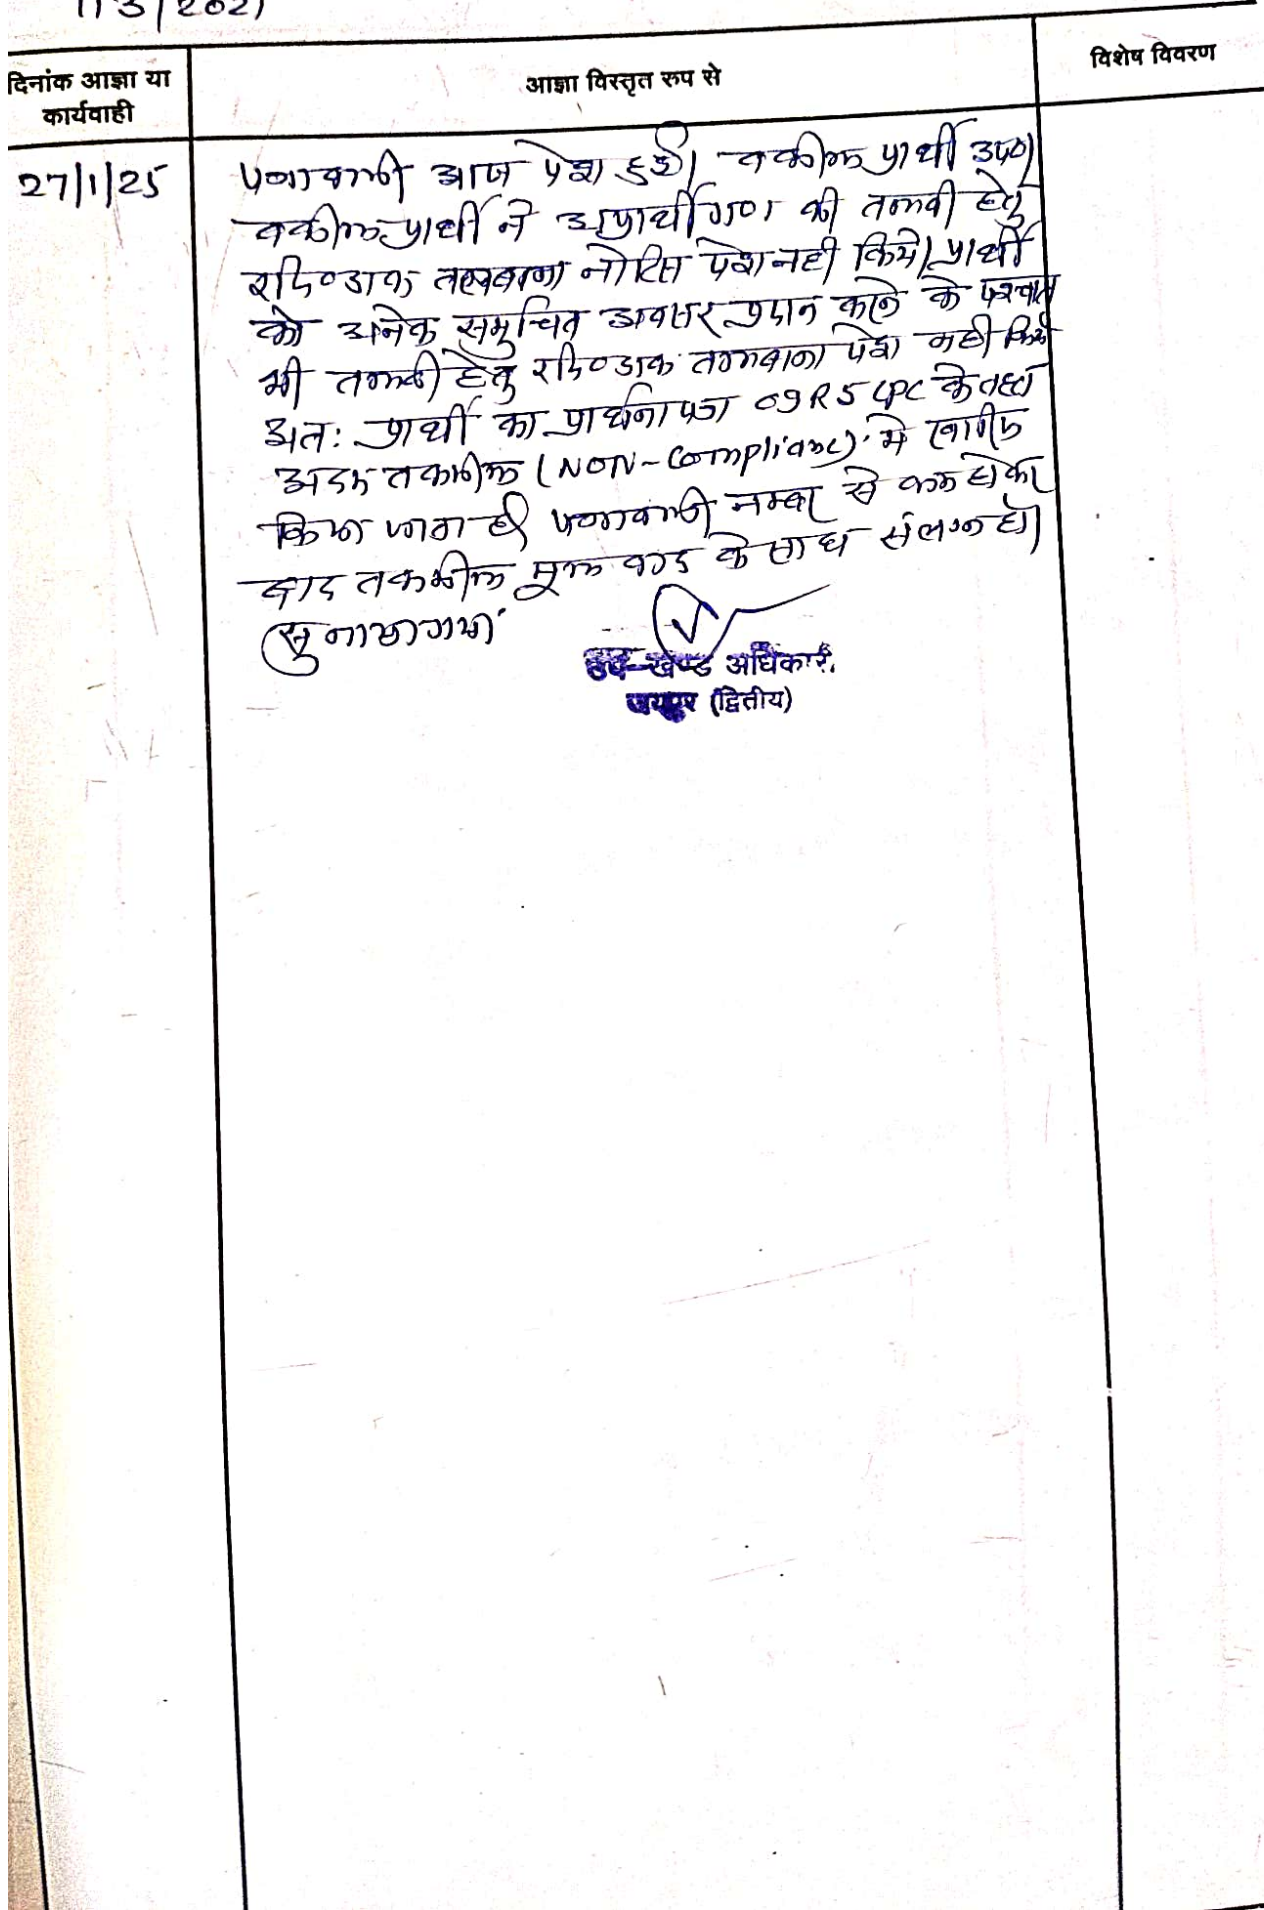 113/2021
दिनांक आज्ञा या
कार्यवाही
आज्ञा विस्तृत रुप से
विशेष विवरण
27/1/25
पत्रावली आज पेश हुई। वकील प्रार्थी उप०।
वकील प्रार्थी ने अप्रार्थीगण की तलबी हेतु
रजि०डाक तलबाना नोटिस पेश नही किये। प्रार्थी
को अनेक समुचित अवसर प्रदान करने के पश्चात
भी तलबी हेतु रजि०डाक तलबाना पेश नही किये
अतः प्रार्थी का प्रार्थना पत्र O9R5 CPC के तहत
अदम तकमील (NON-Compliance) मे खारीज
किया जाता है। पत्रावली नम्बर से कम होकर
बाद तकमील मूल वाद के साथ संलग्न हो।
सुनाया गया।
उप-खण्ड अधिकारी
जयपुर (द्वितीय)